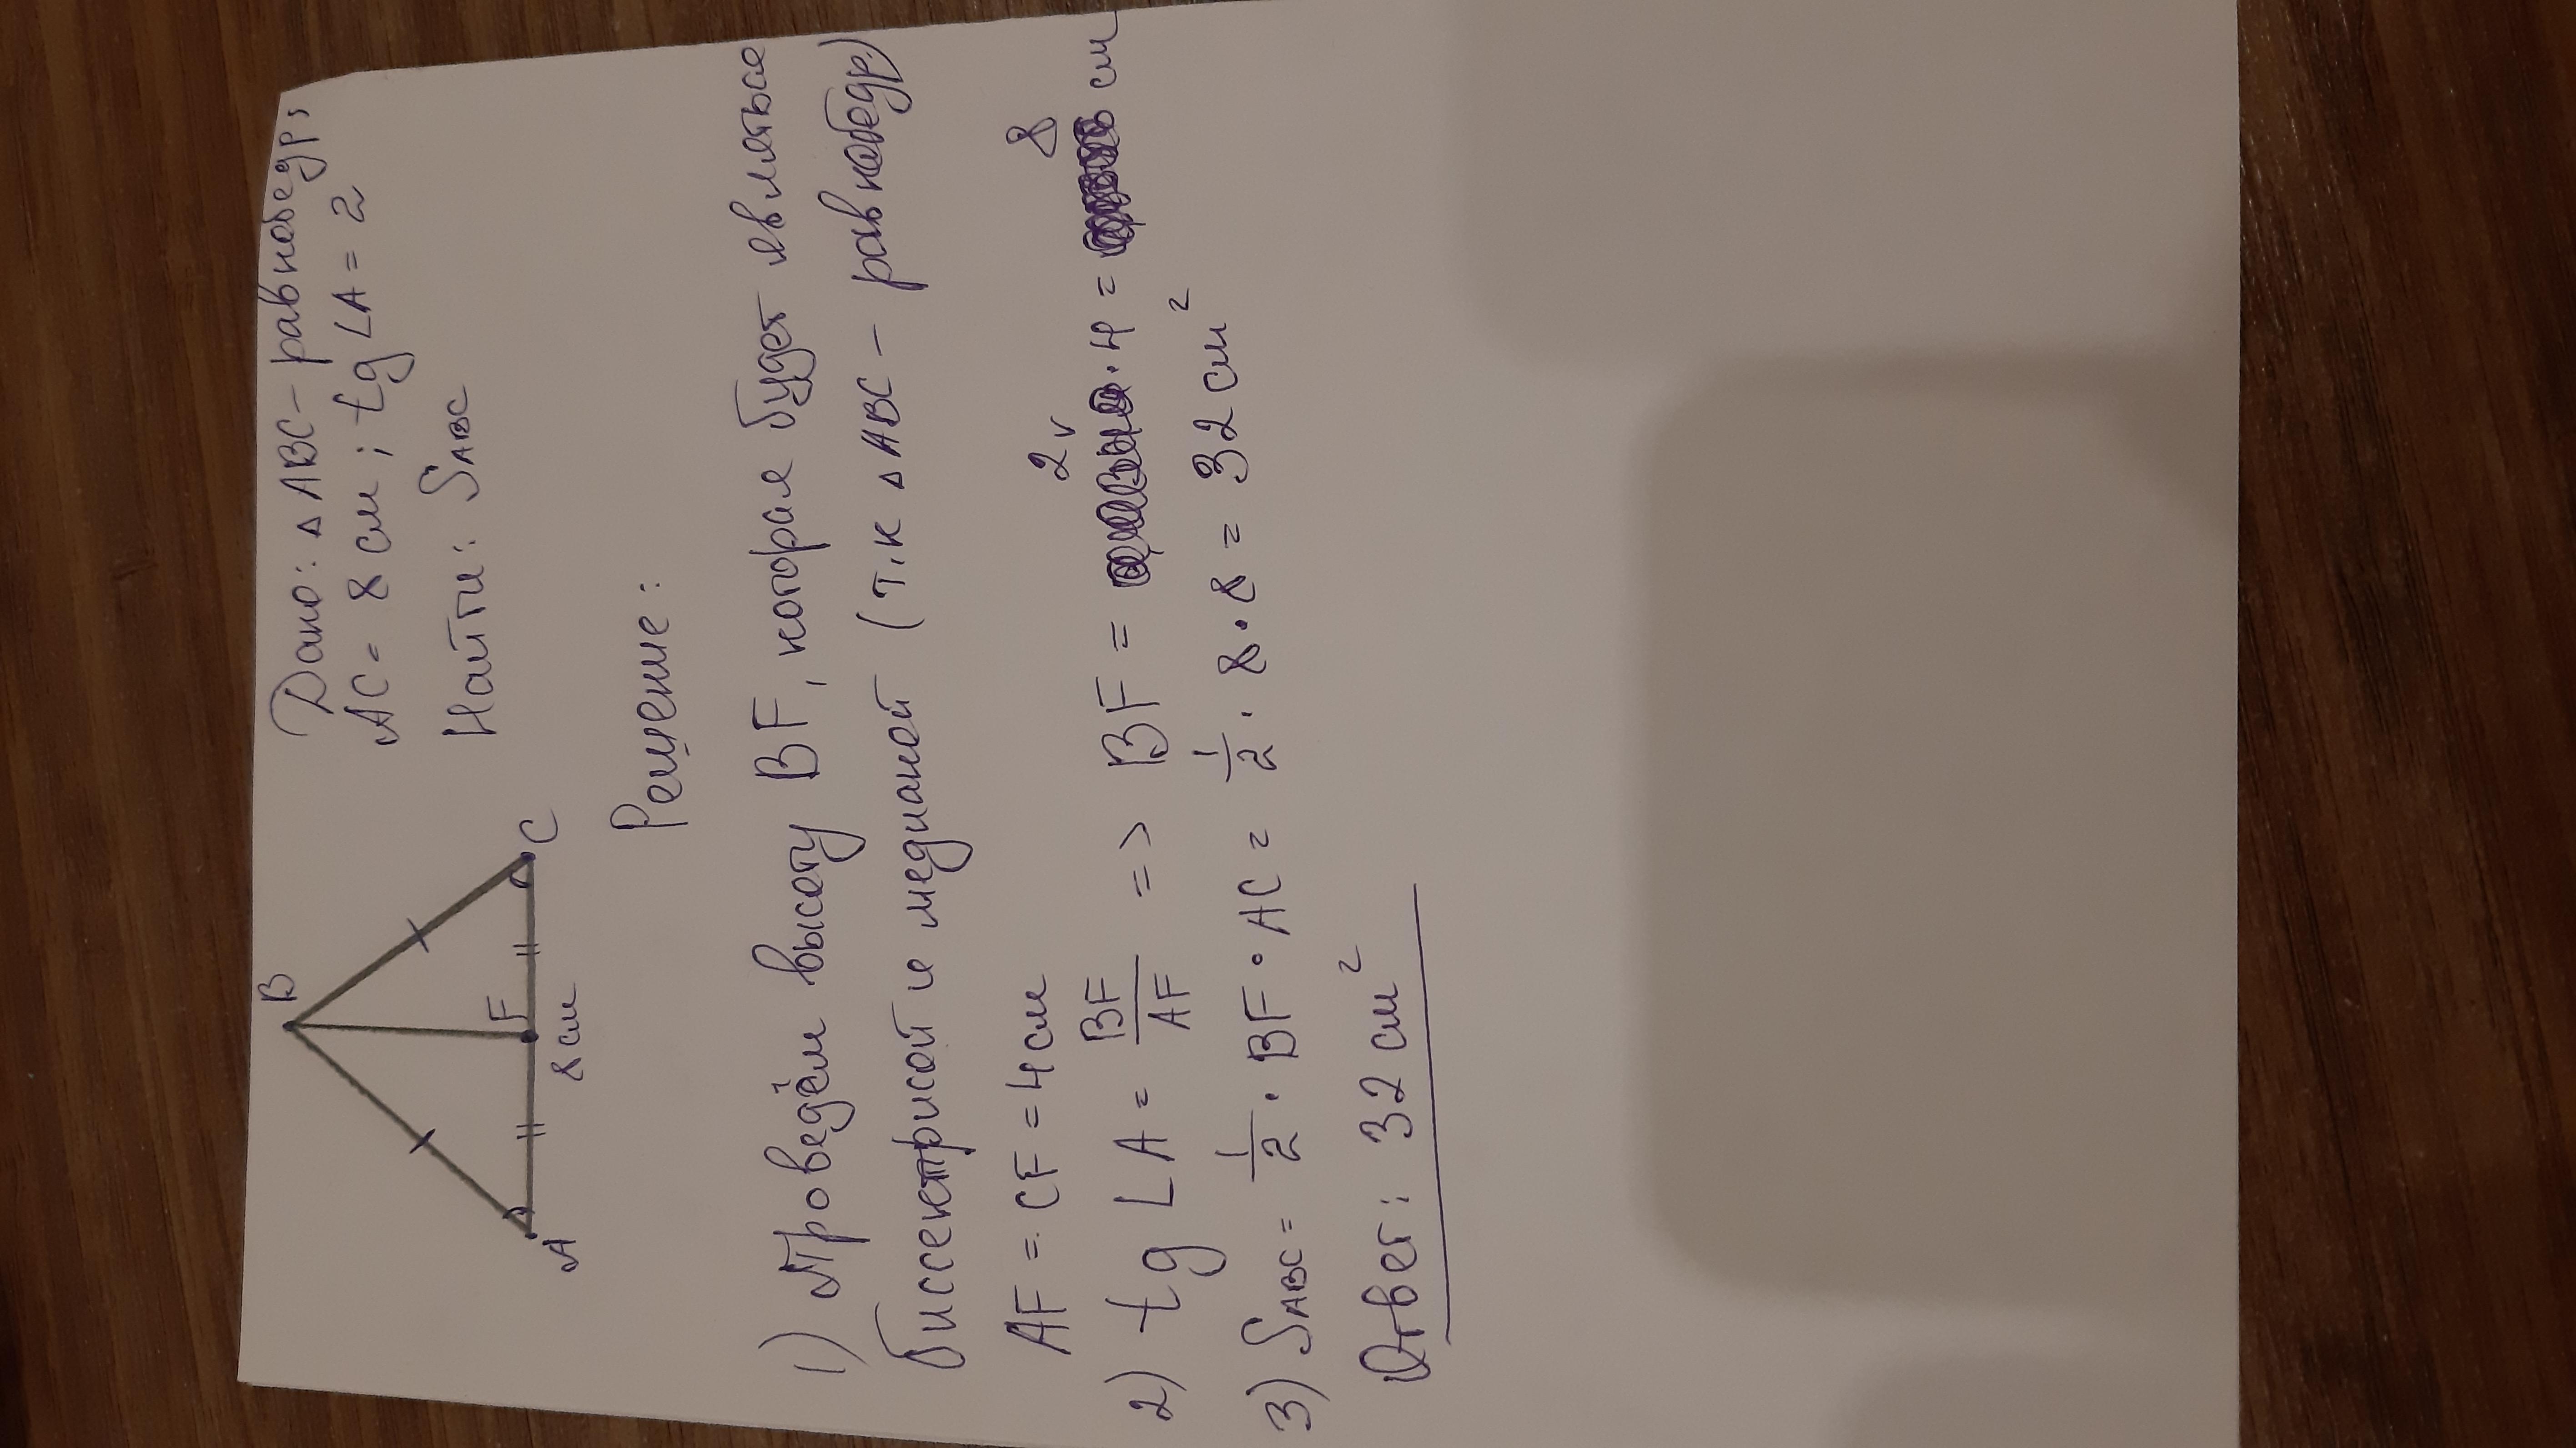 B
A
F
C
8 см
Дано: △ABC – равнобедр;
AC = 8 см ; tg∠A = 2
Найти: S ABC
Решение:
1) Проведём высоту BF, которая будет являться
биссектрисой и медианой (т.к △ABC – равнобедр)
AF = CF = 4 см
2) tg∠A = BF/AF => BF = 2 · 4 = 8 см
3) S ABC = 1/2 · BF · AC = 1/2 · 8 · 8 = 32 см²
Ответ: 32 см²